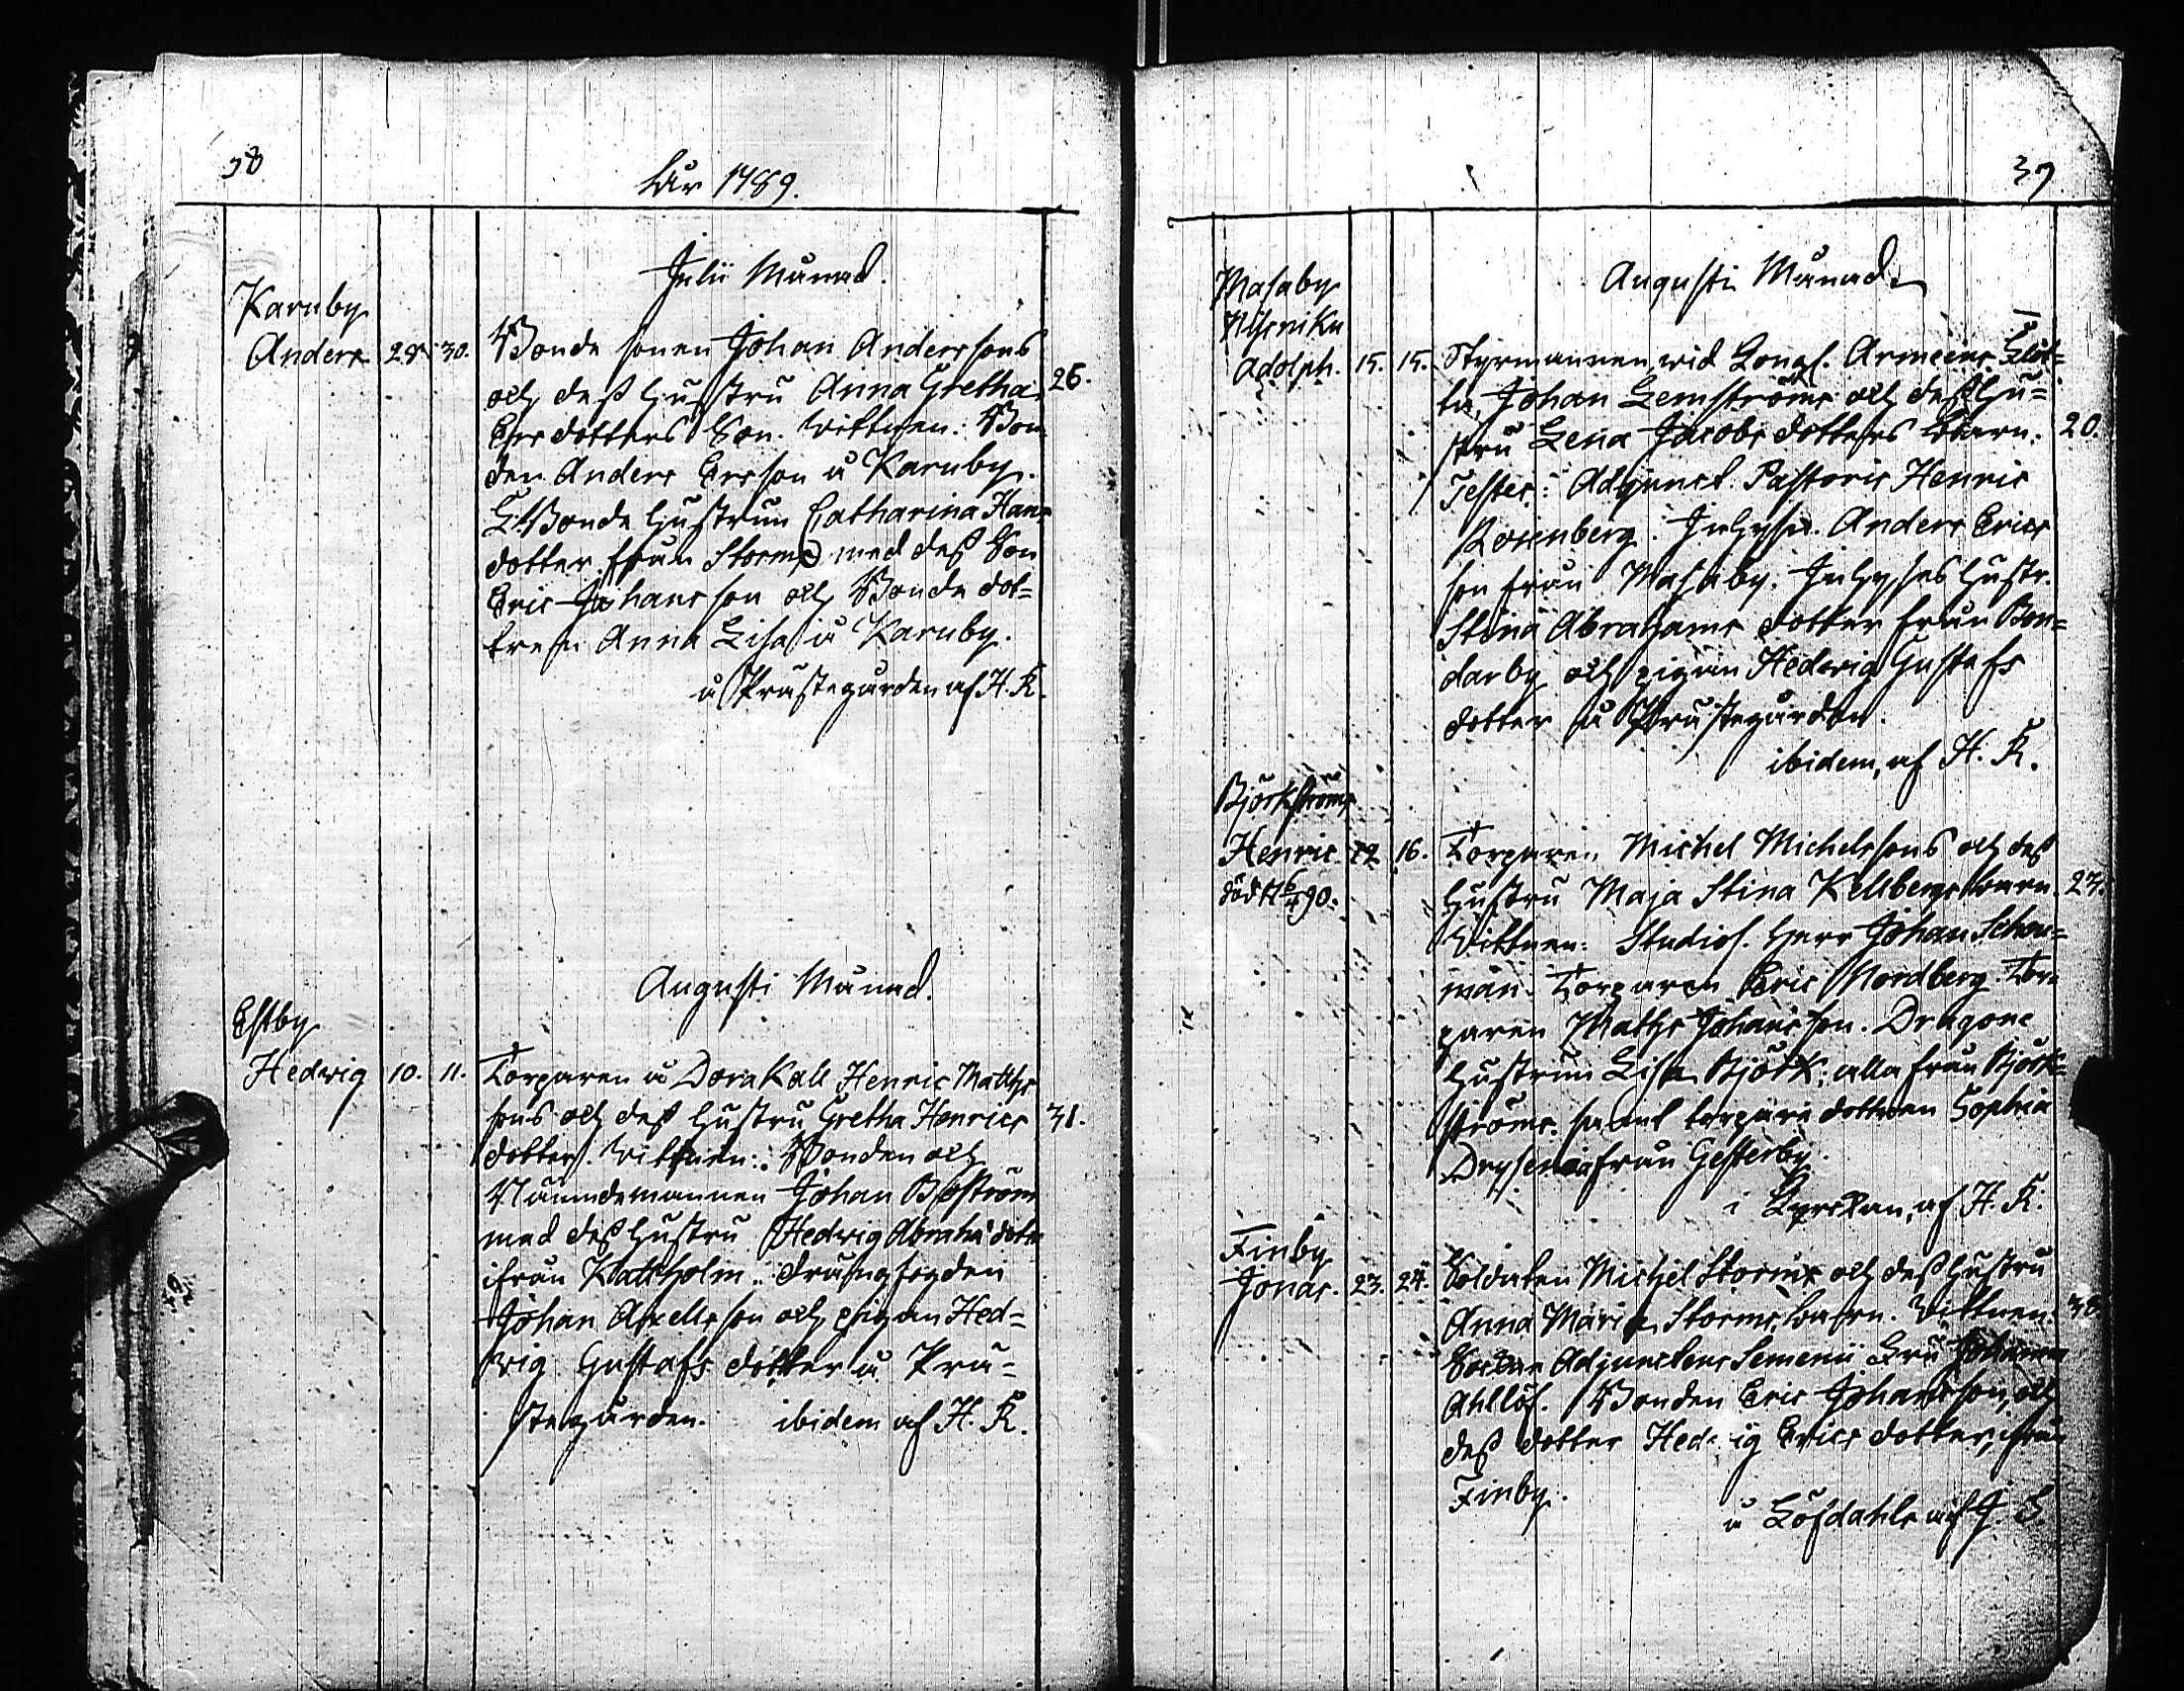 38
År 1789.
Julii Månad.
Karuby
Anders 28. 30. Bonde sonen Johan Anderssons
och deß hustru Anna Gretha 26.
Ers dotters Son. Wittnen: Bon-
den Anders Ersson å Karuby.
Bonde hustrun Catharina Hans
dotter från Storms med deß Son
Eric Johansson och Bonde dot=
tren Anna Lisa å Karuby.
å Prästegården af H. R.
Augusti Månad.
Estby
Hedwig 10. 11. Torparen å Dorakall Henric Matths
sons och deß hustru Gretha Henrics 31.
dotter. Wittnen: Bonden och
Nämndemannen Johan Boström
med deß hustru Hedwig Abrahª dotter
ifrån Kallholm. drängfogden
Johan Axellsson och pigan Hed=
wig Gustafs dotter å Prä=
stegården. ibidem af H. R.
37
Augusti Månad
Masaby
Adolph. 15. 15. Styrmannen wid Kongl. Arméens Flot=
ta, Johan Lemströms och deß hu=
stru Lena Jacobs dotters barn. 20.
Testes: Adjunct. Pastoris Henric
Rosenberg. Inhyses. Anders Erics
son från Masaby. Inhyses hustr.
Stina Abrahams dotter från Bon=
darby och pigan Hedwig Gustafs
dotter å Prästegården.
ibidem, af H. R.
Björkströms
Henric 12 16. Torparen Michel Michelssons och deß
död 90. hustru Maja Stina Kellbergs barn. 27.
Vittnen: Studios. Herr Johan Schou=
man. Torparen Eric Nordberg. Tor=
paren Maths Johansson. Dragone
hustrun Lisa Björk: alla från Björk=
ströms. samt torpare dottren Sophia
Drysenia från Gesterby.
i Kyrckan, af H. R.
Finby
Jonas. 23. 24. Soldaten Michel Storms och deß hustru
Anna Maria Storms barn. Vittnen: 38
Adjunctens Semenii Fru Johanna
Ahllöf. Bonden Eric Johansson, och
deß dotter Hedwig Erics dotter, ifrån
Finby.
å Löfdahls af J. S